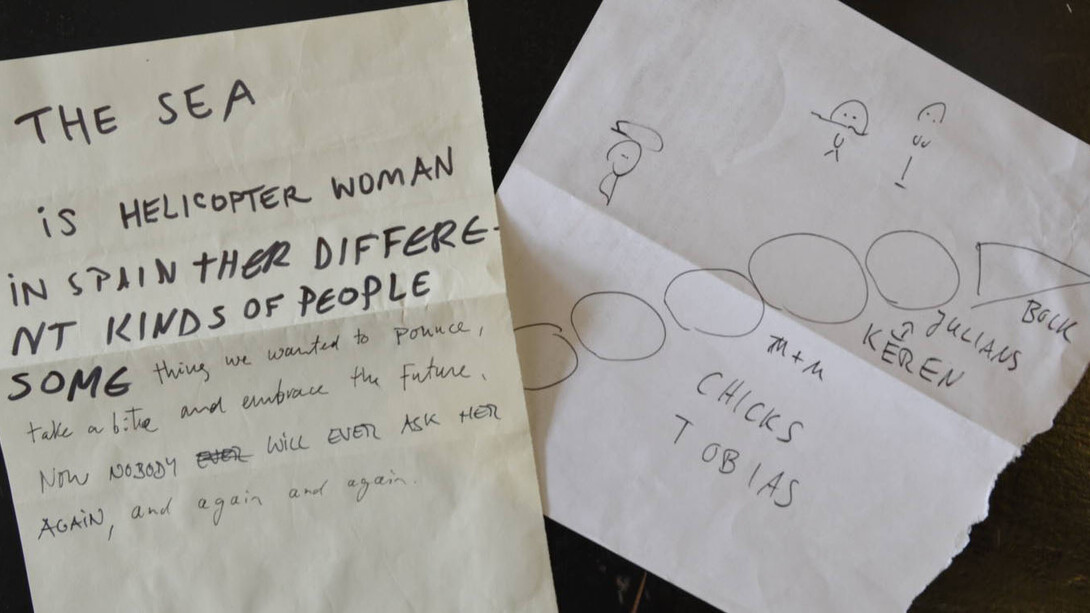 THE SEA
iS HELICOPTER WOMAN
iN SPAIN THER DIFFERE-
NT KINDS OF PEOPLE
SOME thing we wanted to pounce,
take a bite and embrace the future.
Now NOBODY EVER WiLL EVER ASK HER
AGAiN, and again and again.
BACK
JULIANS
KEREN
M+M
CHICKS
TOBIAS